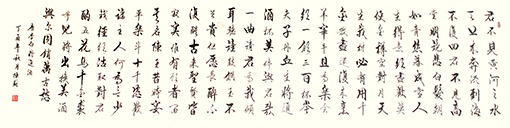 君不見黃河之水
天上來奔流到海
不復回君不見高
堂明鏡悲白髮朝
如青絲暮成雪人
生得意須盡歡莫
使金樽空對月天
生我材必有用千
金散盡還復來烹
羊宰牛且爲樂會
須一飲三百杯岑
夫子丹丘生將進
酒杯莫停與君歌
一曲請君爲我傾
耳聽鐘鼓饌玉不
足貴但願長醉不
復醒古來聖賢皆
寂寞惟有飲者留
其名陳王昔時宴
平樂斗酒十千恣歡
謔主人何爲言少
錢徑須沽取對君
酌五花馬千金裘
呼兒將出換美酒
與爾同銷萬古愁
唐李白將進酒
丁酉年秋月